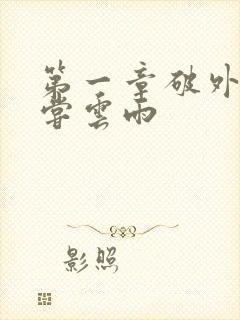 第一章破外
嘗雲雨
影照